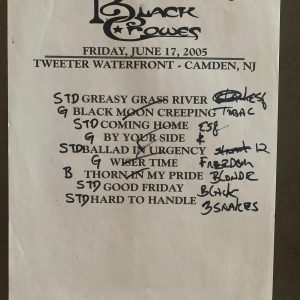 Black
Crowes
FRIDAY, JUNE 17, 2005
TWEETER WATERFRONT - CAMDEN, NJ
STD GREASY GRASS RIVER
G BLACK MOON CREEPING
STD COMING HOME
G BY YOUR SIDE
STD BALLAD IN URGENCY 12
G WISER TIME FREEDOM
B THORN IN MY PRIDE BLONDE
STD GOOD FRIDAY BLACK
STD HARD TO HANDLE 3 SNAKES